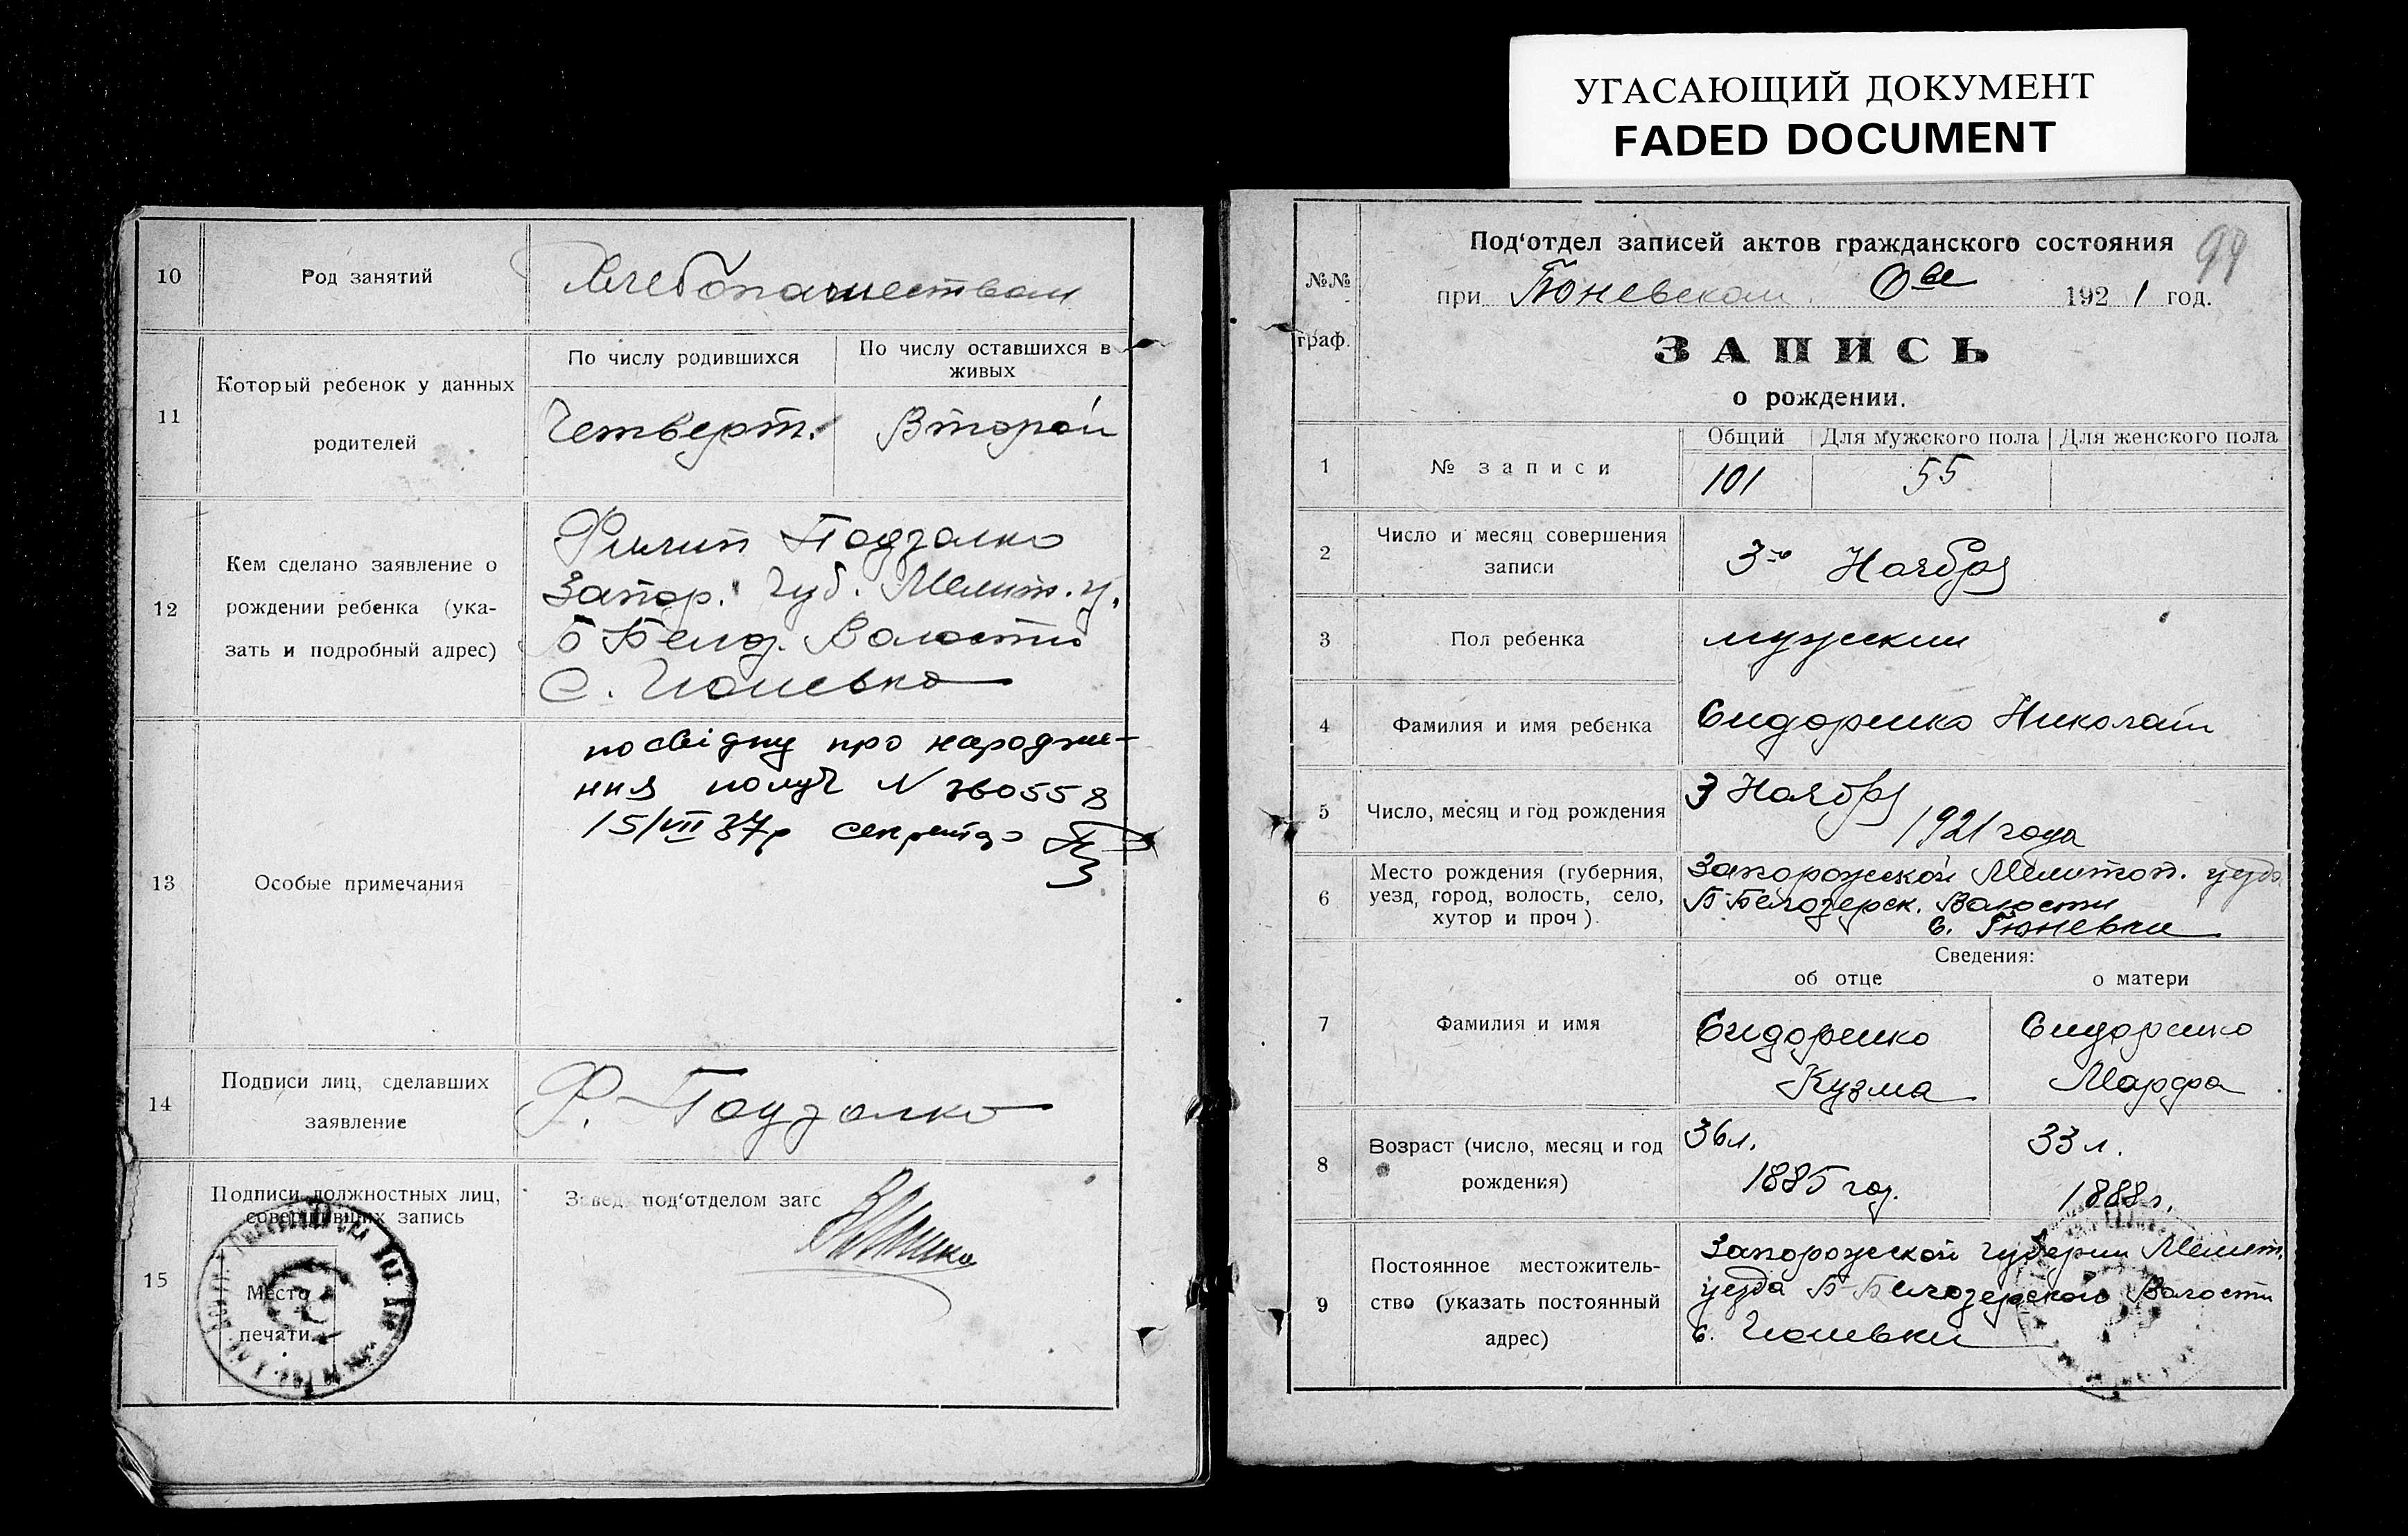 УГАСАЮЩИЙ ДОКУМЕНТ
FADED DOCUMENT
10 Род занятий Хлебопашеством
11 Который ребенок у данных родителей
По числу родившихся По числу оставшихся в живых
Четверт. Второй
12 Кем сделано заявление о
рождении ребенка (ука-
зать и подробный адрес)
Филип Подзолко
Запор. Губ. Мелит. у.
Б Белоз. Волости
С. Гюневка
13 Особые примечания
посвідку про народже-
ння получ N 360558
15/VII 37р секретар
14 Подписи лиц, сделавших
заявление
Ф. Подзолко
15 Подписи должностных лиц,
совершивших запись
Завед. под‘отделом загс
Место
печати
99
№№
граф.
Под‘отдел записей актов гражданского состояния
при Гюневском Ове 1921 год.
ЗАПИСЬ
о рождении.
Общий Для мужского пола Для женского пола
1 № записи 101 55
2 Число и месяц совершения
записи
3го Ноября
3 Пол ребенка мужский
4 Фамилия и имя ребенка Сидоренко Николай
5 Число, месяц и год рождения 3 Ноября
1921 года
6 Место рождения (губерния,
уезд, город, волость, село,
хутор и проч).
Запорожской Мелитоп. уезда
Б-Белозерск. Волости
с. Гюневки
Сведения:
об отце о матери
7 Фамилия и имя
Сидоренко Сидоренко
Кузма Марфа
8 Возраст (число, месяц и год
рождения)
36 л. 33 л.
1885 год. 1888 г.
9 Постоянное местожитель-
ство (указать постоянный
адрес)
Запорожской губерни Мелит.
уезда Б-Белозерской Волости
с. Гюневки